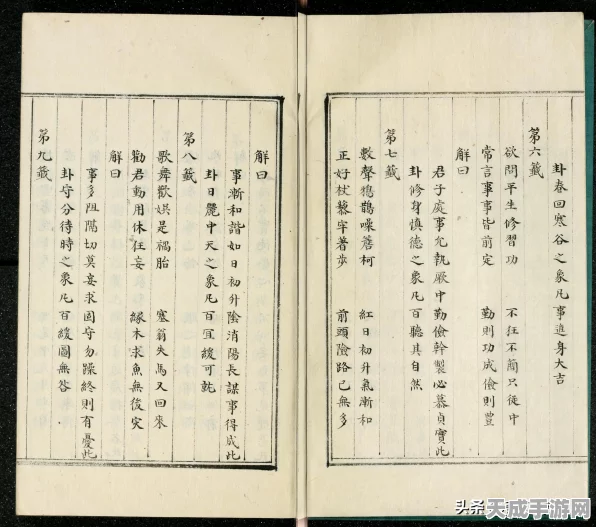 卦春回寒谷之象凡事進身大吉
第六籤
欲問平生修習功 不狂不簡只從中
常言事事皆前定 勤則功成儉則豐
解曰
君子處事允執厥中勤儉幹製心慕貞實此
卦修身慎德之象凡百聽其自然
第七籤
數聲鴉鵲噪簷柯 紅日初升氣漸和
正好杖藜牢著步 前頭險路已無多
解曰
事漸和諧如日初升陰消陽長謀事得成此
卦日麗中天之象凡百宜緩可就
第八籤
歌舞歡娛是禍胎 塞翁失馬又回來
勸君動用休狂妄 緣木求魚無後災
解曰
事多阻隔切莫妄求固守勿躁終則有憂此
卦守分待時之象凡百緩圖無咎
第九籤
头条
天成手游网